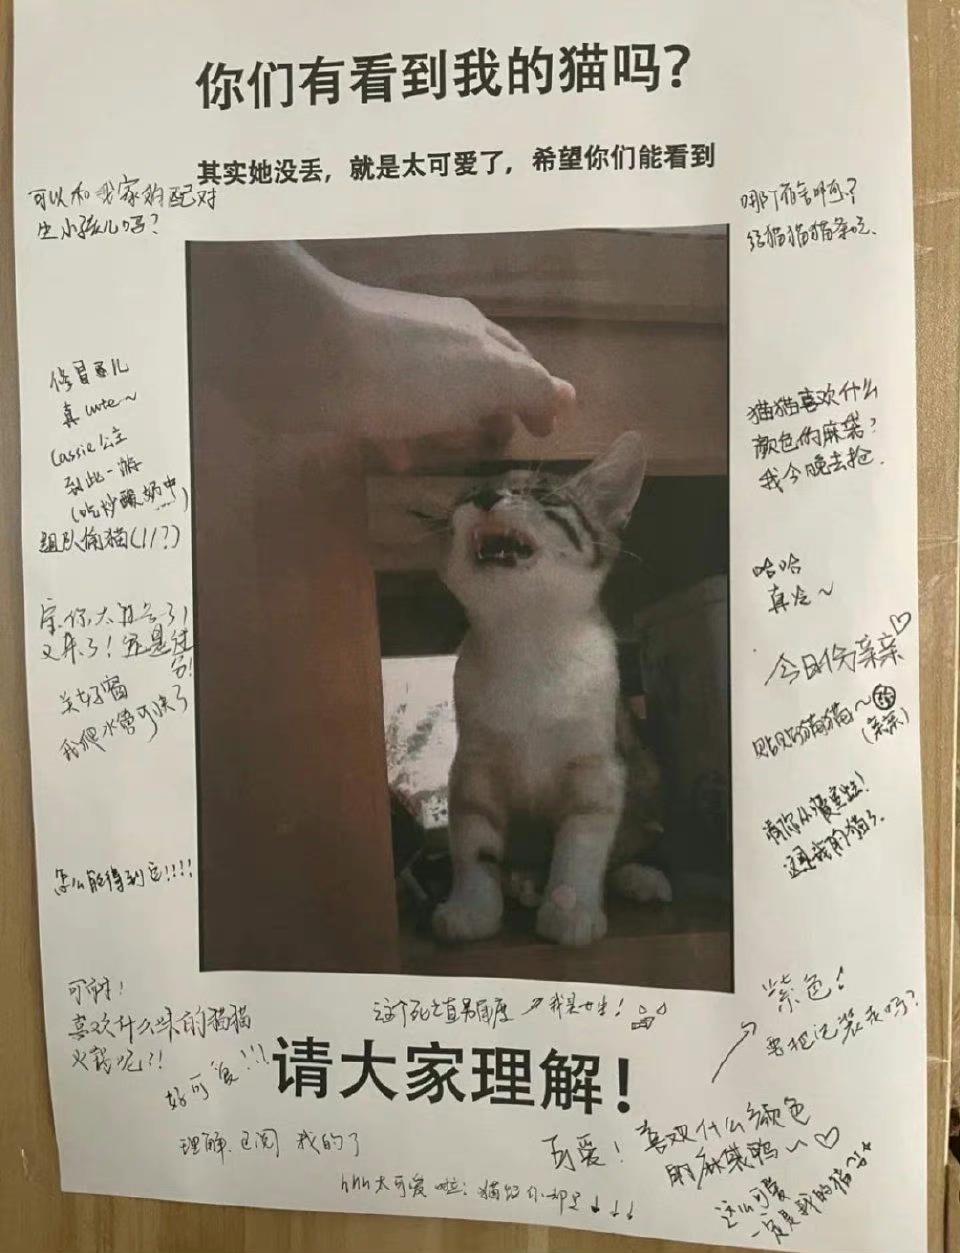 你们有看到我的猫吗？
其实她没丢，就是太可爱了，希望你们能看到
可以和我家狗配对
生小孩儿吗？
哪个宿舍啊？
给猫猫猫条吃.
真cute~
Cassie公主
到此一游
(吃炒酸奶中)
组队偷猫(1/?)
猫猫喜欢什么
颜色的麻袋？
我今晚去抢.
哈哈
真冷~
又来了！
关好窗
我爬水管可快了
今日份亲亲♡
贴贴猫猫~
(亲亲)
还是我的猫
怎么能得到它!!!!
可爱!
喜欢什么味的猫猫
火锅呢?!
好可爱!!!
这个死亡直男角度 ↗我是女生!
请大家理解！
紫色!
要把它装走吗?
理解.已阅 我的了
可爱！喜欢什么颜色
的麻袋鸭~♡
hhh太可爱啦
这么可爱
一定是我的猫